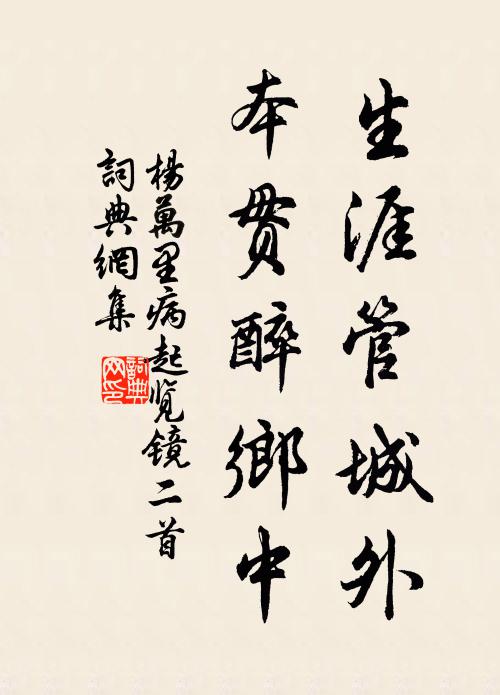 生涯管城外
本贯醉鄉中
楊萬里病起览镜二首
詞典網集
詞典
网印